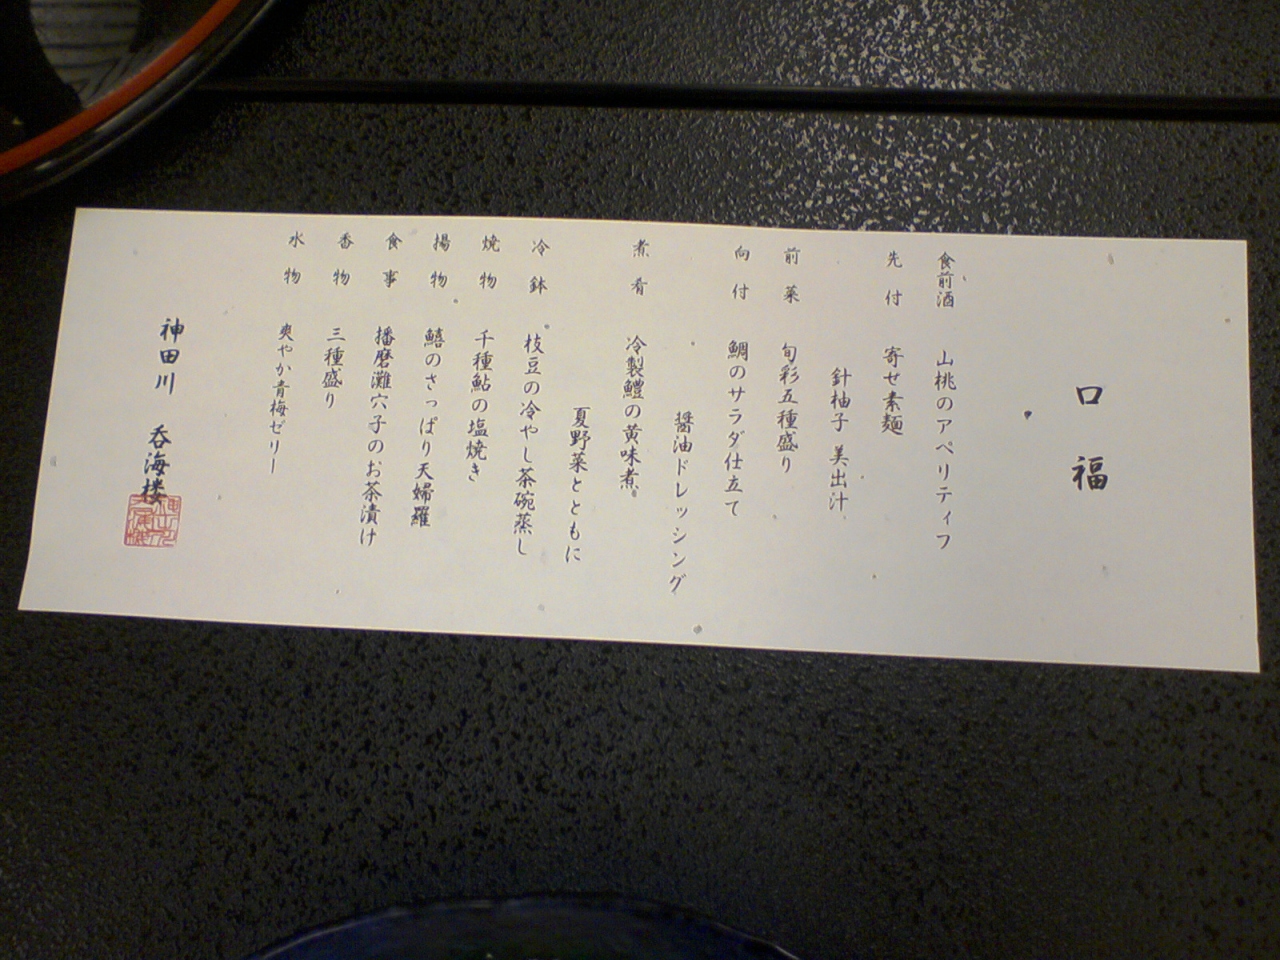 口福
食前酒 山桃のアペリティフ
先付 寄せ素麺
針柚子 美出汁
前菜 旬彩五種盛り
向付 鯛のサラダ仕立て
醤油ドレッシング
煮肴 冷製鱧の黄味煮
夏野菜とともに
冷鉢 枝豆の冷やし茶碗蒸し
焼物 千種鮎の塩焼き
揚物 鱚のさっぱり天婦羅
食事 播磨灘穴子のお茶漬け
香物 三種盛り
水物 爽やか青梅ゼリー
神田川 呑海楼